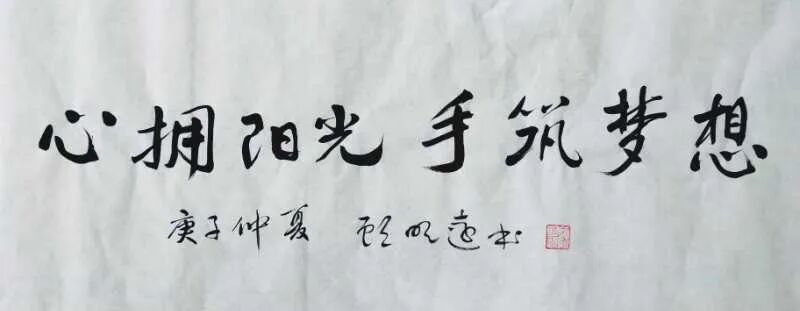 心拥阳光 手筑梦想
庚子仲夏 顾明远书